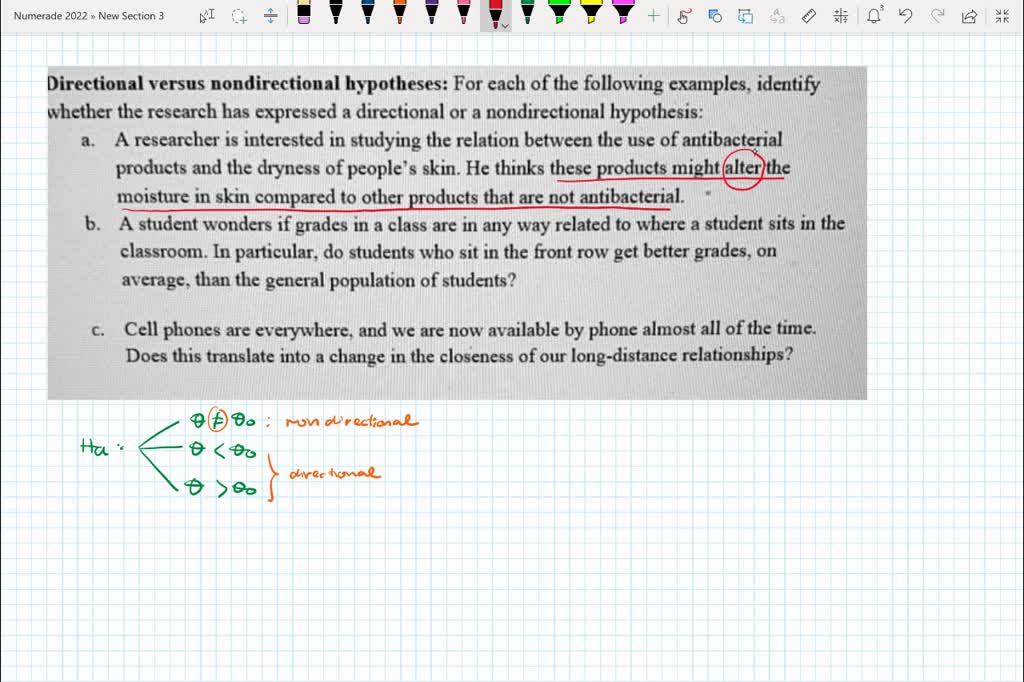 Numerade 2022 » New Section 3
Directional versus nondirectional hypotheses: For each of the following examples, identify
whether the research has expressed a directional or a nondirectional hypothesis:
a. A researcher is interested in studying the relation between the use of antibacterial
products and the dryness of people's skin. He thinks these products might alter the
moisture in skin compared to other products that are not antibacterial.
b. A student wonders if grades in a class are in any way related to where a student sits in the
classroom. In particular, do students who sit in the front row get better grades, on
average, than the general population of students?
c. Cell phones are everywhere, and we are now available by phone almost all of the time.
Does this translate into a change in the closeness of our long-distance relationships?
θ ≠ θ0 : nondirectional
Ha : θ < θ0
directional
θ > θ0